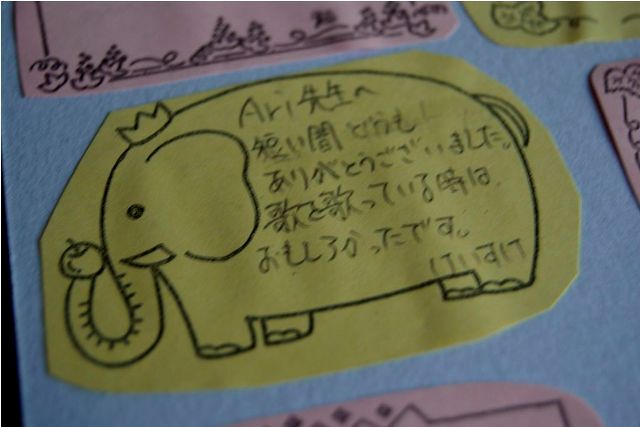 Ari先生へ
短い間どうも
ありがとうございました。
歌を歌っている時は、
おもしろかったです。
けいすけ